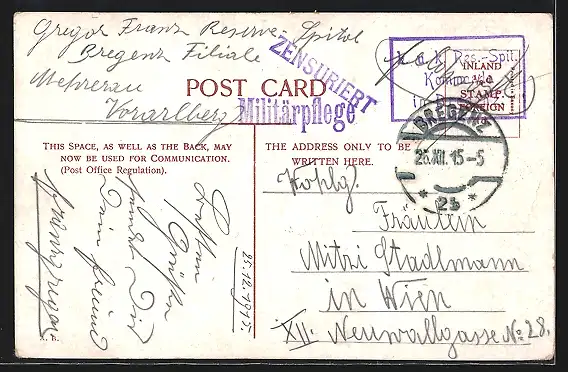 Gregor Franz Reserve Spital
Bregenz Filiale
Mehrerau
Vorarlberg
ZENSURIERT
POST CARD
Militärpflege
k. u. k. Res.-Spit.
Kommando
in
INLAND
½d
STAMP.
FOREIGN
1d.
BREGENZ
25.XII.15-5
* 2b *
THIS SPACE, AS WELL AS THE BACK, MAY
NOW BE USED FOR COMMUNICATION.
(Post Office Regulation).
THE ADDRESS ONLY TO BE
WRITTEN HERE.
25.12.1915.
Grüße
sendet Dir
Dein Freund
Franz Gregor
Fräulein
Mitzi Stadlmann
in Wien
XII. Neuwallgasse No 28.